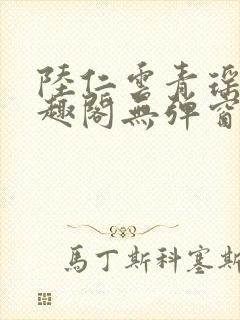 陸仁雲青瑶
趣閣無彈窗
馬丁斯科塞斯